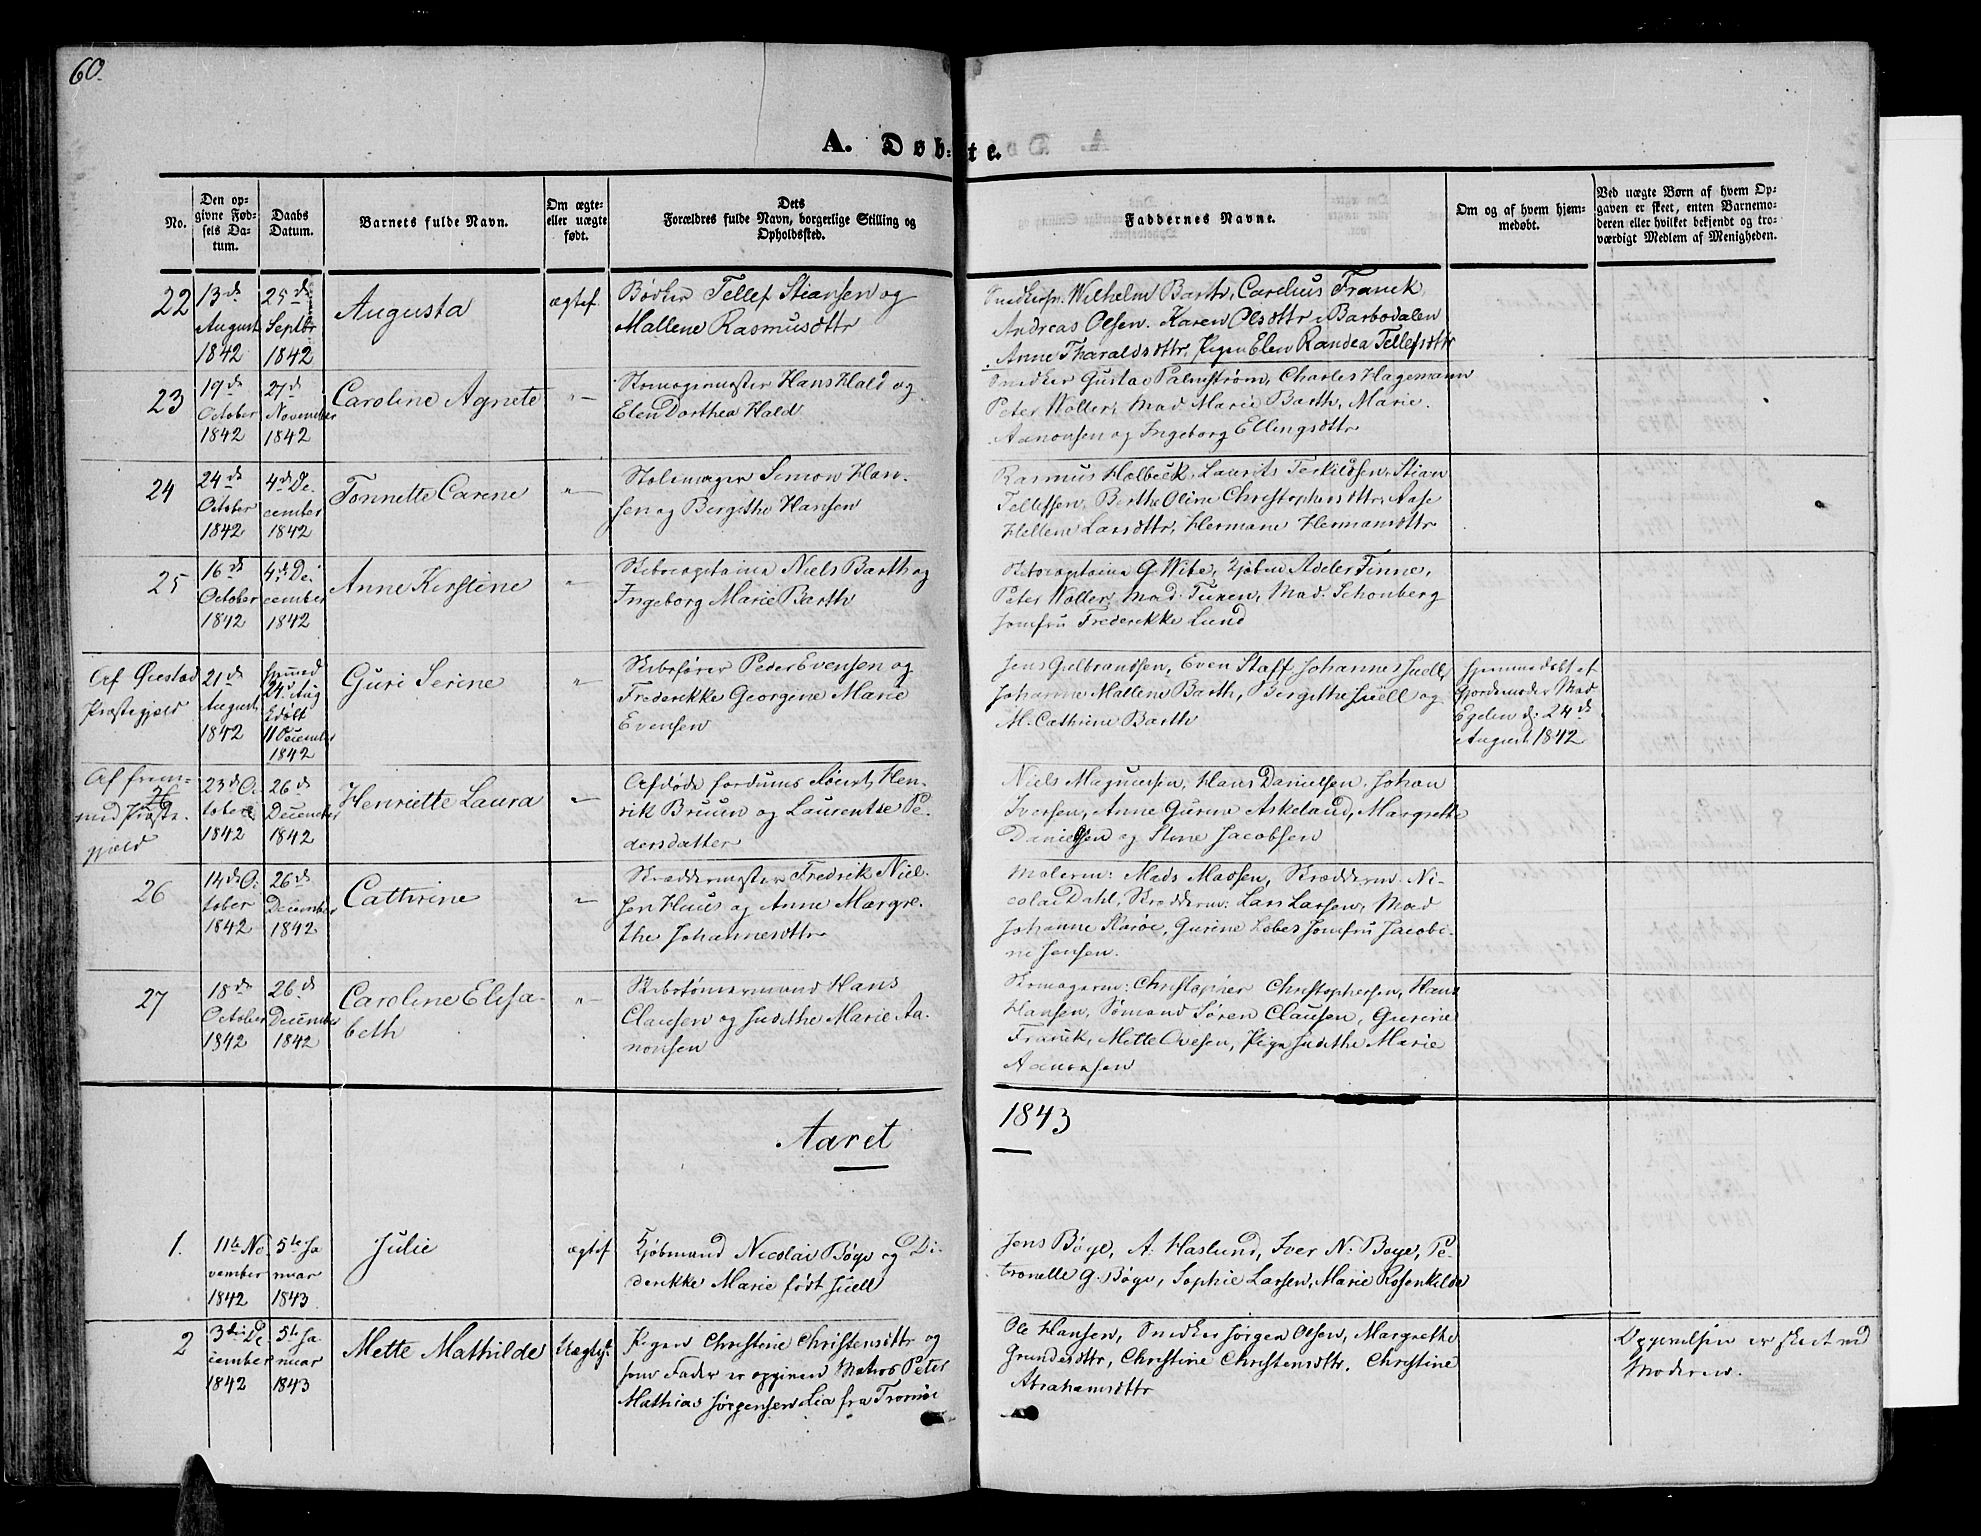 60.
A. Døb-
te.
No.
Den op-
givne Fød-
sels Da-
tum.
Daabs
Datum.
Barnets fulde Navn.
Om ægte
eller uægte
født.
Dets
Forældres fulde Navn, borgerlige Stilling og
Opholdssted.
Faddernes Navne.
Om og af hvem hjem-
medøbt.
Ved uægte Børn af hvem Op-
gaven er skeet, enten Barnemo-
deren eller hvilket bekjendt og tro-
værdigt Medlem af Menigheden.
22
13de
August
1842
25de
Septbr
1842
Augusta
ægtef.
Bødker Tellef Stiansen og
Mallene Rasmusdttr
Wilhelm Barth, Carelius Franck,
Andreas Olsen. Karen Olsdttr Barbodalen
Anne Tharaldsdttr, Pigen Elen Randea Tellefsdttr
23
19de
October
1842
27de
November
1842
Caroline Agnete
"—
Skomagermester Hans Hald og
Elen Dorthea Hald
Snedker Gustav Palmstrøm, Charles Hagemann
Peter Woller, Mad Marie Barth, Marie
Aanonsen og Ingeborg Ellingsdttr
24
24de
October
1842
4de De-
cember
1842
Tonnette Carene
"—
Stolemager Simon Han-
sen og Bergithe Hansen
Rasmus Holbeck, Laurits Terkildsen, Stian
Tellefsen, Berthe Oline Christophersdttr, Aase
Hellene Larsdttr, Hermane Hermansdttr
25
16de
October
1842
4de De-
cember
1842
Anne Kirstine
"—
Skibscapitain Niels Barth og
Ingeborg Marie Barth
Skibscapitain G. Wibe, Kjøbm Adeler Finne,
Peter Woller, Mad: Tuxen, Mad. Schonberg
Jomfru Frederikke Lund
Af Øiestad
Præstegjeld
21de
August
1842
Hjemmed
24d Aug
Edøbt
11 December
1842
Guri Serine
"
Skibsfører Peder Evensen og
Frederikke Georgine Marie
Evensen
Jens Gulbrandsen, Even Staff, Johannes Juell,
Johanne Mallene Barth, Bergithe Juëll og
M. Cathrine Barth
Hjemmedøbt af
Jordemoder Mad
Egelen d: 24de
August 1842
Af frem-
26
med Præste-
gjeld
23de O:
tober
1842
26de
December
1842
Henriette Laura
"—
Afdøde fordums Løient, Hen-
rik Bruun og Laurentse Pe-
dersdatter
Niels Magnesen, Hans Danielsen, Johan
Iversen, Anne Gurine Askeland, Margrethe
Danielsen og Stine Jacobsen
26
14de O:
tober
1842
26de
December
1842
Cathrine
"—
Skræddermester Fredrik Niel-
sen Huus og Anne Margre-
the Johannesdttr
Malerm: Mads Madsen, Skrædderm. Ni-
colai Dahl, Skrædderm: Lars Larsen, Mad
Johanne Skarøe, Gurine Lobes Jomfru Jacobi-
ne Jensen.
27
18de
October
1842
26de
December
1842
Caroline Elisa-
beth
"—
Skibstømmermand Hans
Clausen og Judithe Marie Aa-
nonsen
Skomagerm: Christopher Christophersen, Hans
Hansen, Sømand Søren Clausen, Gurine
Franck, Mette Ovesen, Pige Judithe Marie
Aanonsen
Aaret
1843
1.
11te No-
vember
1842
5te Ja
nuar
1843
Julie
ægtef
Kjøbmand Nicolai Bøye og Di-
derikke Marie født Juell
Jens Bøye, A. Haslund, Iver N: Boye, Pe-
tronelle G. Bøye, Sophie Larsen, Marie Rosenkilde
2
3die De
cember
1842
5te Ja
nuar
1843
Mette Mathilde
Uægtef.
Pigen Christine Christensdttr og
som Fader er opgiven Matros Peter
Mathias Jørgensen Lia fra Tromøe
Ole Hansen, Snedker Jørgen Olsen, Margrethe
Grundesdttr, Christine Christensdttr. Christine
Abrahamsdttr
Opgivelsen er skeet ved
Moderen.